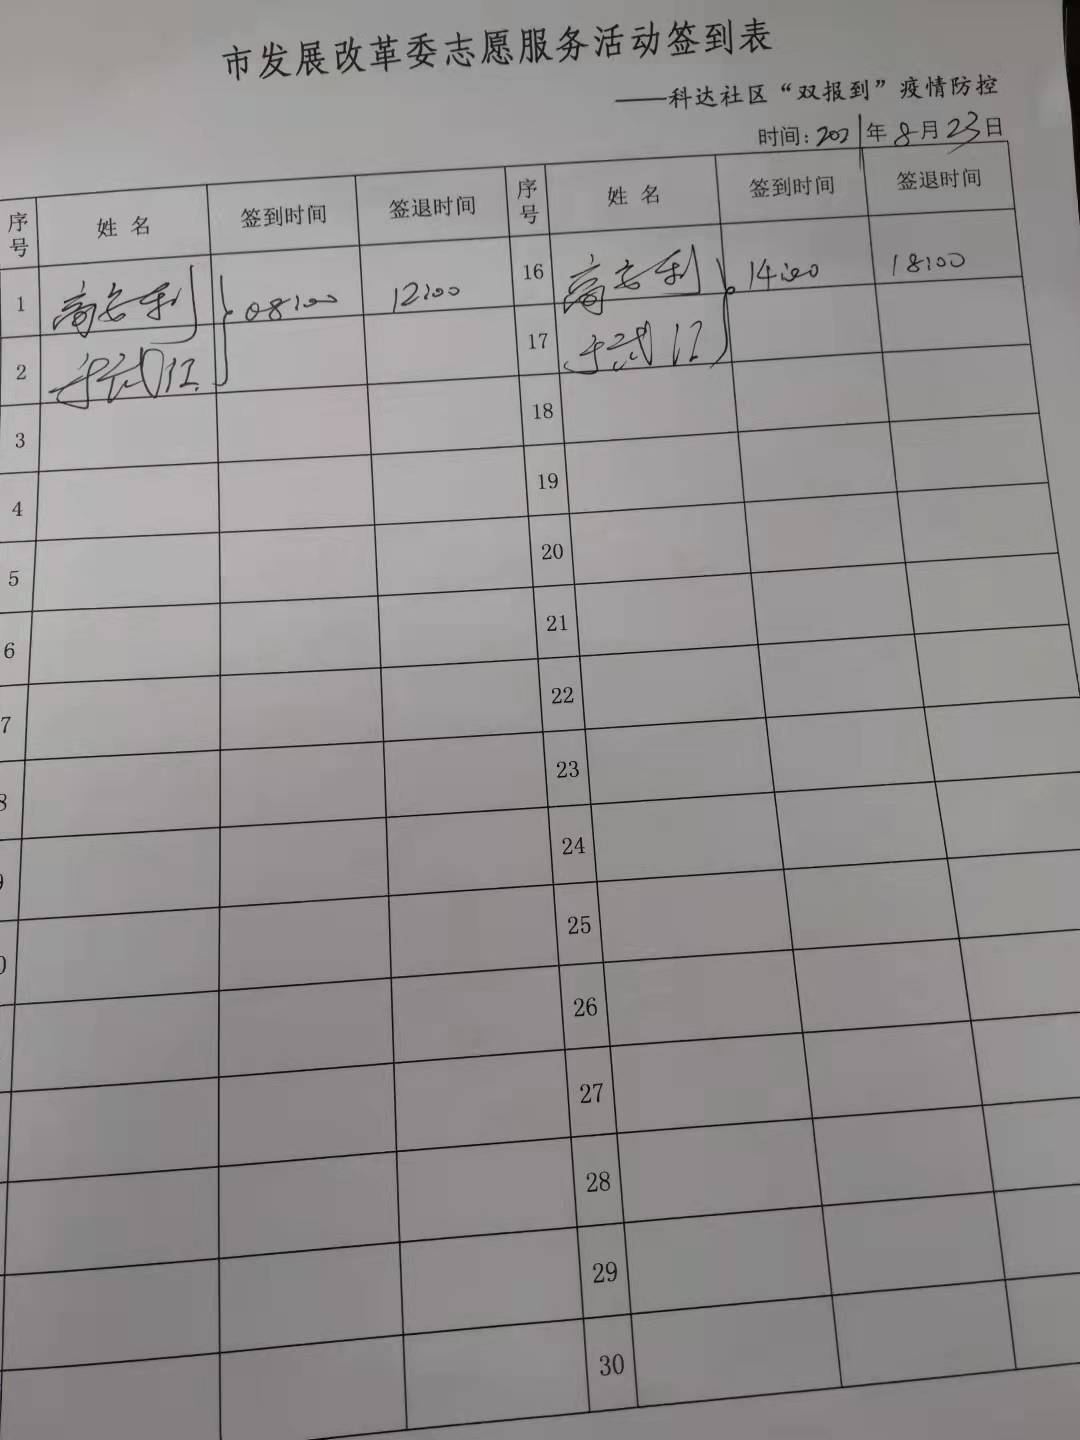 市发展改革委志愿服务活动签到表
——科达社区“双报到”疫情防控
时间：2021年8月23日
序号 姓名 签到时间 签退时间 序号 姓名 签到时间 签退时间
1 08:00 12:00 16 14:00 18:00
2 17
3 18
4 19
5 20
6 21
7 22
8 23
9 24
0 25
26
27
28
29
30